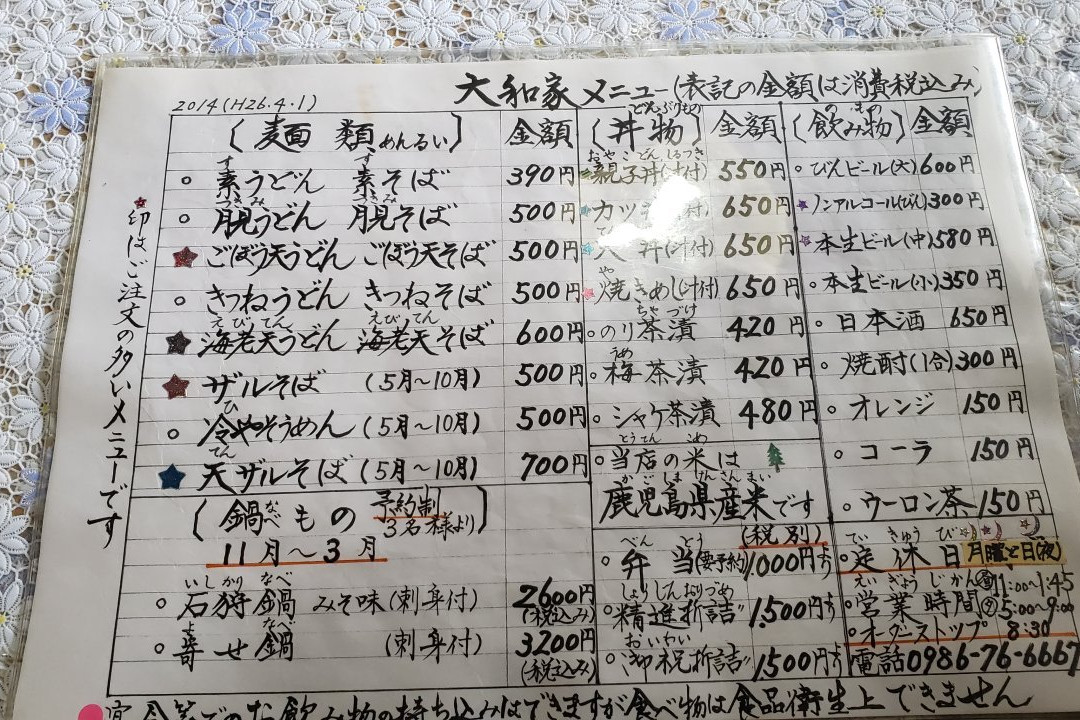 大和家メニュー(表記の金額は消費税込み)
2014(H26.4.1)
★印はご注文の多いメニューです
〔麺類めんるい〕 金額
○ 素うどん 素そば 390円
○ 月見うどん 月見そば 500円
★ ごぼう天うどん ごぼう天そば 500円
○ きつねうどん きつねそば 500円
★ 海老天うどん 海老天そば 600円
★ ザルそば (5月~10月) 500円
○ 冷やそうめん (5月~10月) 500円
★ 天ザルそば (5月~10月) 700円
〔鍋もの〕 予約制 3名様より
11月~3月
○ 石狩鍋 みそ味(刺身付) 2600円(税込み)
○ 寄せ鍋 (刺身付) 3200円(税込み)
〔丼物〕 金額
親子丼(汁付) 550円
カツ 650円
丼(汁付) 650円
★ 焼きめし(汁付) 650円
○ のり茶漬 420円
○ 梅茶漬 420円
○ シャケ茶漬 480円
○ 当店の米は
鹿児島県産米です
(税別)
○ 弁当(要予約) 1000円より
○ 精進折詰 1,500円より
○ 御祝折詰 1,500円より
〔飲み物〕 金額
○ びんビール(大) 600円
★ ノンアルコール(びん) 300円
★ 本生ビール(中) 580円
○ 本生ビール(小) 350円
○ 日本酒 650円
○ 焼酎(1合) 300円
○ オレンジ 150円
○ コーラ 150円
○ ウーロン茶 150円
○ 定休日 月曜と日(夜)
○ 営業時間 11:00~1:45
5:00~9:00
○ オーダーストップ 8:30
電話0986-76-6667
宴会等でのお飲み物の持ち込みはできますが食べ物は食品衛生上できません